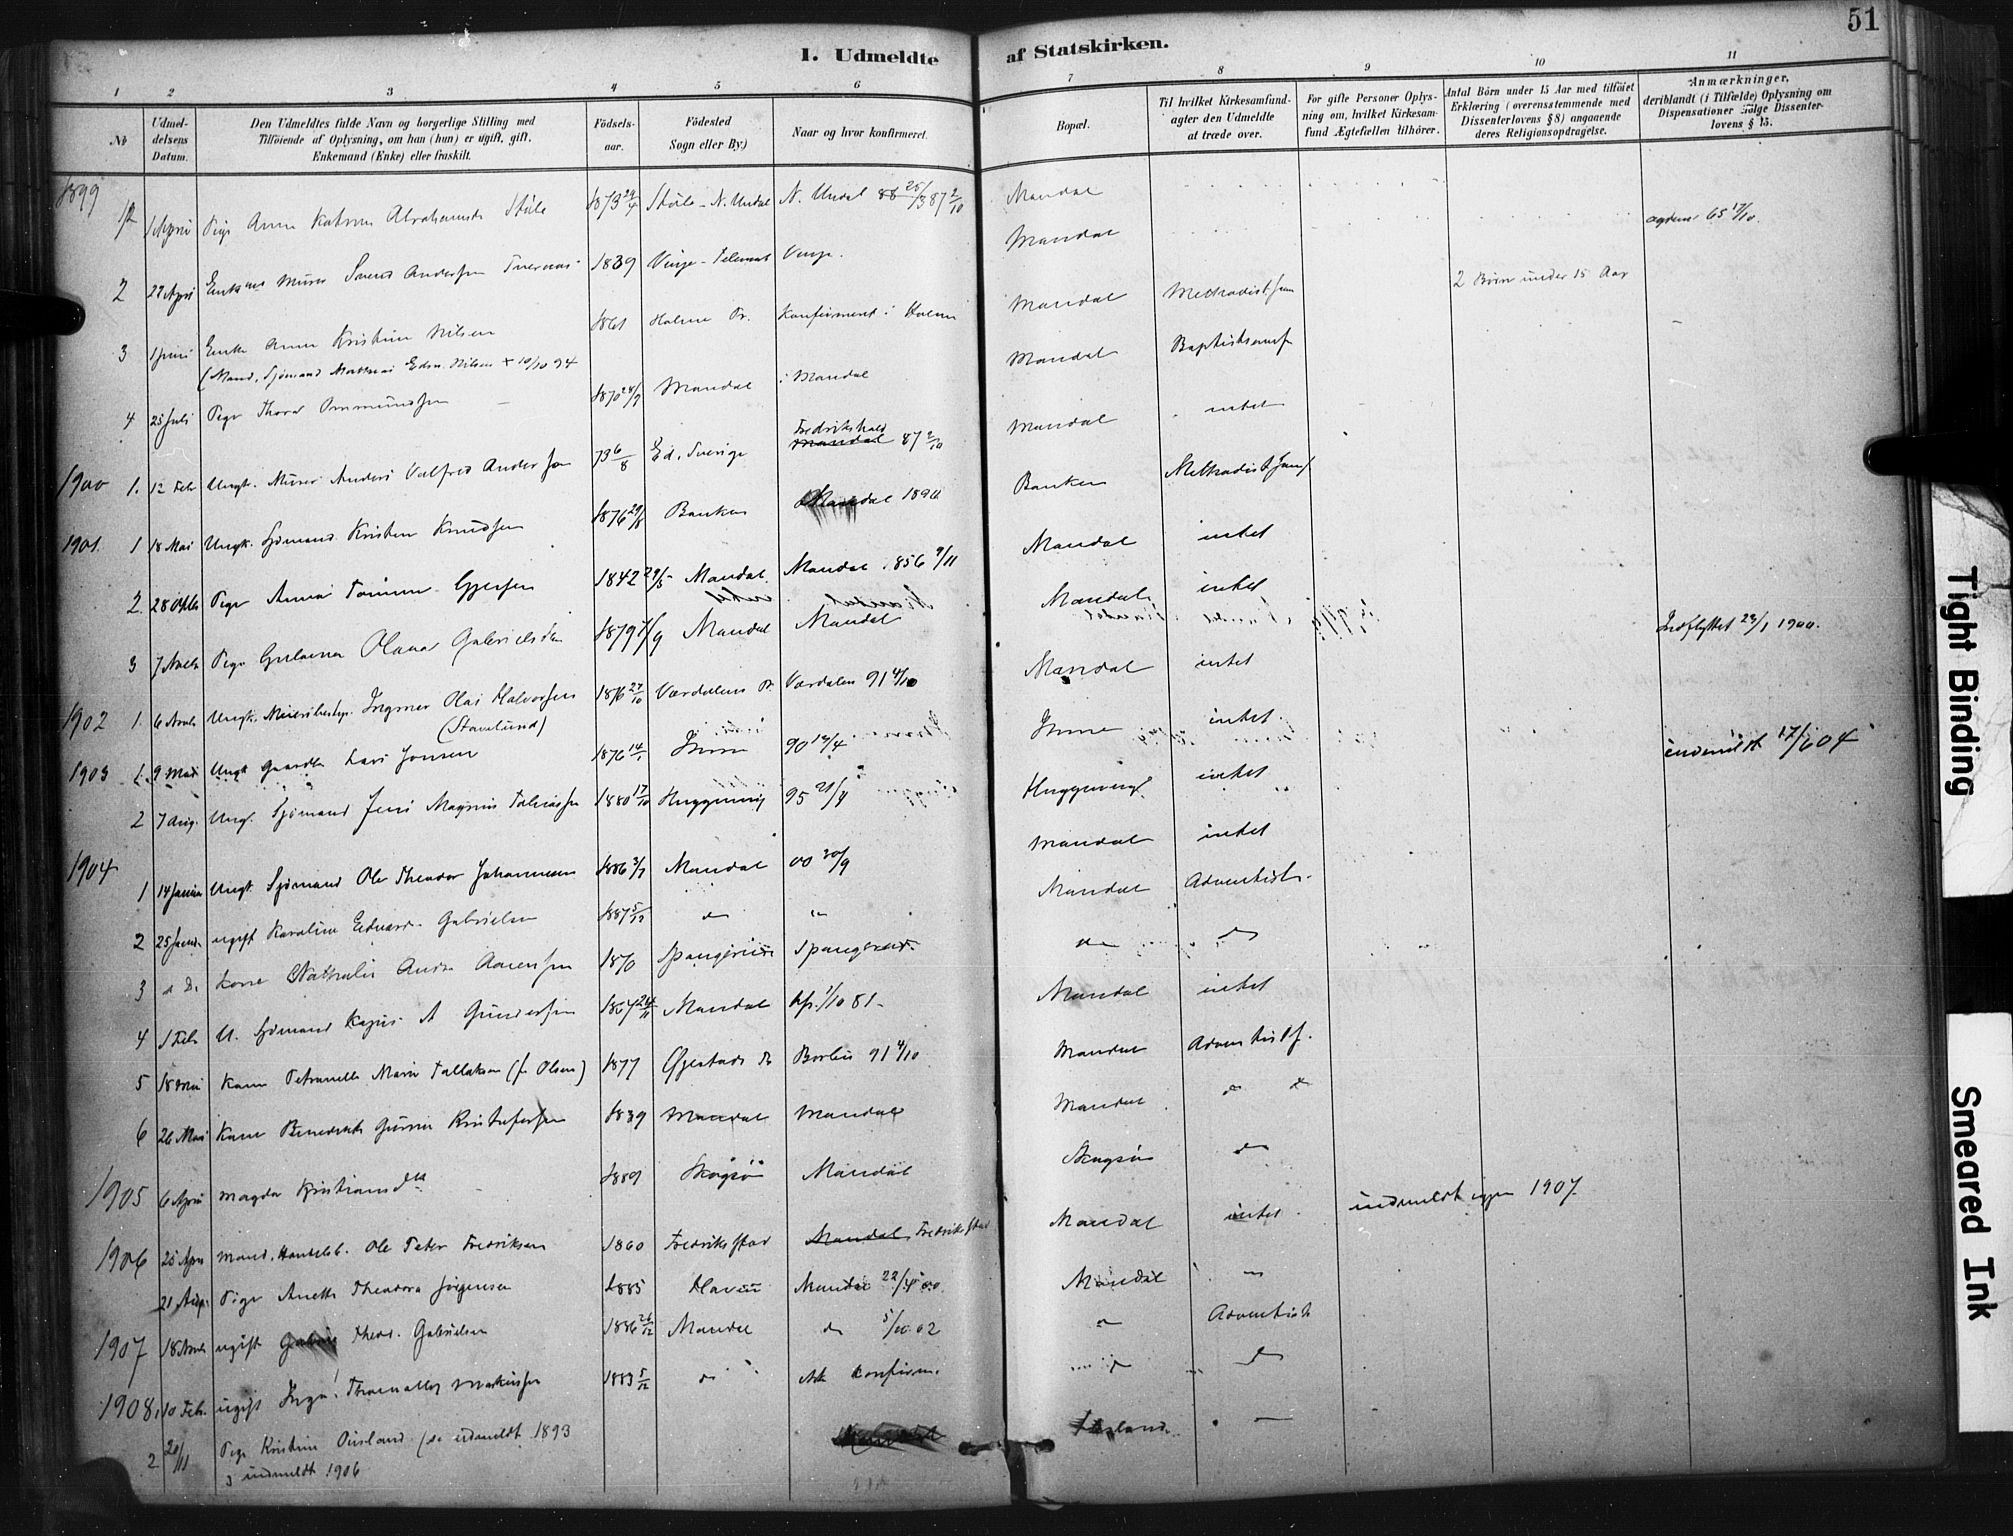 51
1. Udmeldte af Statskirken.
1 2 3 4 5 6 7 8 9 10 11
No
Udmel-
delsens
Datum.
Den Udmeldtes fulde Navn og borgerlige Stilling med
Tilföiende af Oplysning, om han (hun) er ugift, gift,
Enkemand (Enke) eller fraskilt.
Födsels-
aar.
Födested
Sogn eller By.)
Naar og hvor konfirmeret.
Bopæl.
Til hvilket Kirkesamfund
agter den Udmeldte
at træde over.
For gifte Personer Oplys-
ning om, hvilket Kirkesam-
fund Ægtefællen tilhörer.
Antal Börn under 15 Aar med tilföiet
Erklæring (overensstemmende med
Dissenterlovens §8) angaaende
deres Religionsopdragelse.
Anmærkninger,
deriblandt (i Tilfælde) Oplysning om
Dispensationer ifølge Dissenter-
lovens § 15.
1899
1 April Pige Anna Abrahamsd. Ståle 1873 24/4 Ståle - N. Undal N. Undal 87 2/10 Mandal
2 22 April Enkem. Murer Andersen 1839 Vinje - Telemark Vinje. Mandal
3 1 Juni Enke Anna Kristine Nilsen 1861 Holme Pr. Konfirmeret i Holme Mandal Methodistsam 2 Börn under 15 Aar
(Mand, Sjömand Mathias Edw. Nilsen + 10/10 94
4 25 Juli Pige Thora Ommundsen 1870 Mandal i Mandal Mandal Baptistsamf
1900 1. 12 Febr Ungk. Murer Anders Valfred Andersson 73 6/8 Ed. Sverige Mandal Fredrikshald 87 2/10 Mandal intet
1901. 1 18 Mai Ungk. Sjömand Kristen Knudsen 1876 29/8 Banken Mandal 1890 Banken Methodist Samf
2. 28 Oktbr Pige Anna Tomine Gjertsen 1842 29/5 Mandal. Mandal 1856 9/11 Mandal intet
3 7 Novbr Pige Olava Gabrielsen 1879 7/9 Mandal Mandal Mandal intet Indflyttet 23/1 1900.
1902 1. 6 Novbr Ungk. Meieribestyr. Ingmar Olai Halvorsen 1876 27/10 Værdalens Pr. Værdalen 91 4/10 Mandal intet
(Stavlund)
1903 1. 9 Mai Ungk Gaardbr Lars Jonsen 1876 14/1 Imme 90 13/4 Imme intet indmeldt 17/6 04
2 7 Aug. Ungk. Sjömand Jens Magnus Tobiassen 1880 17/10 Huggenvig 95 21/4 Huggenvig intet
1904
1 14 Januar Ungk. Sjömand Ole Theodor Johannesen 1886 3/1 Mandal 00 30/9 Mandal intet
2 25 Januar ugift Karoline Edvarda Gabrielsen 1887 5/12 do " Mandal Adventists.
3 do Kone Nathalie Andrea Aanensen 1870 Spangereid Spangereid do do
4 1 Febr U. Sjömand A Gundersen 1864 24/11 Mandal kfr. 1/10 81 Mandal intet
5 18 Mai Kone Petranelle Marie Tallaksen (f. Olsen) 1877 Øyestads Pr Barbu 91 4/10 Mandal Adventistsf.
6 26 Mai Kone Benedicte Gurine Kristofersen 1839 Mandal Mandal Mandal do do
1905 6 April Magda Kristiansdtr 1889 Skogsöi Mandal Skogsöi do
1906 25 April Mand. Handelsb. Ole Peter Fredriksen 1860 Fredrikstad Mandal Fredrikstad Mandal intet indmeldt igjen 1907
21 Aug. Pige Anette Theodora Jörgensen 1885 Mandal 22/4 00 Mandal "
1907 18 Novbr ugift Theod. Gabrielsen 1886 26/12 Mandal do 5/10 02 " Adventist
1908 1 10 Febr. ugift Inga Markussen 1883 5/12 do ikke konfirm. do do
2 20/11 Pige Kristine (se udmeldt 1893
indmeldt 1906
Tight Binding
Smeared Ink